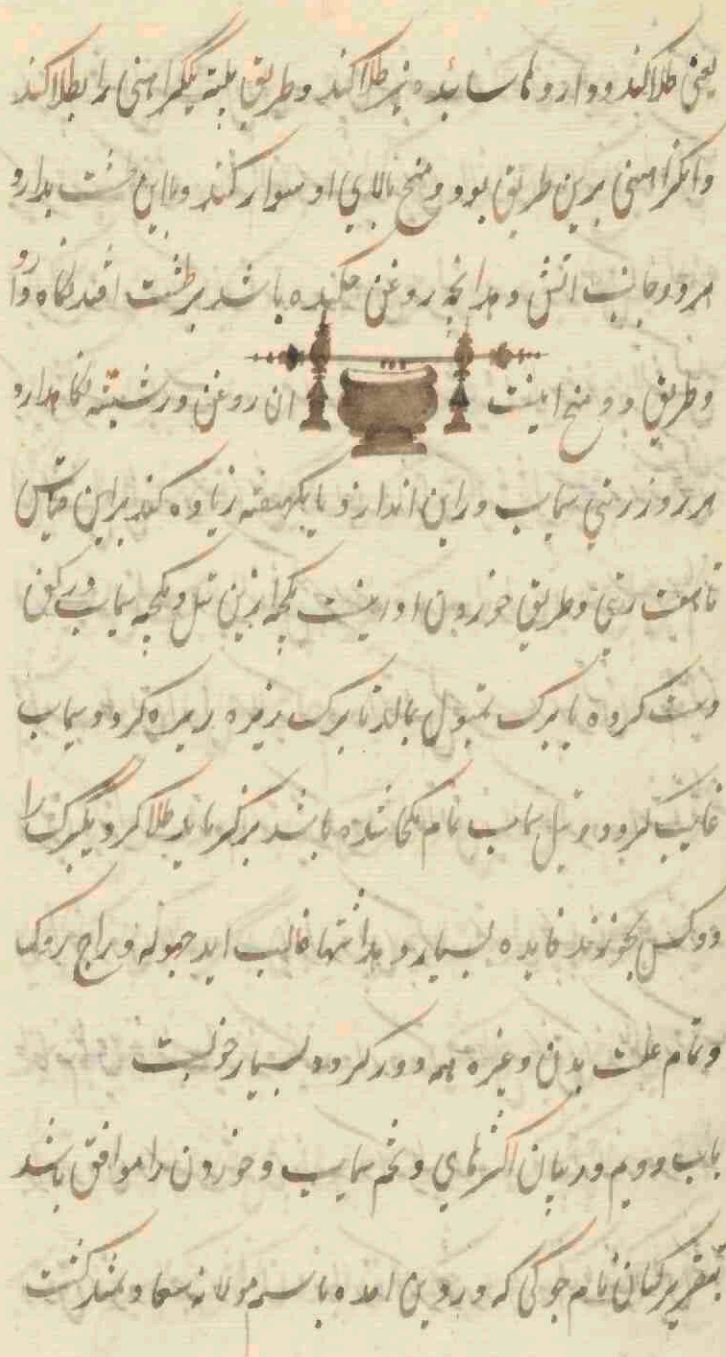 یعنی طلا کند و دارو ها سائیده نیز طلا کند و طریق پلیته یکمرا هنی را بطلا کند
برین طریق بود و میخ بالای او سوار کند و پائین طشت بدارد
هر دو جانب اتش و هرانچه روغن چکیده باشد بر طشت افتد نکاه دارد
و طریق دو میخ اینست ان روغن در شیشه نکاهدارد
هر روز رتی سیماب و راین اندازد تا یکهفته زیاده کند براین قیاس
تا هفت رتی و طریق خوردن او اینست یکچه ازین تیل و یکچه سیماب در کف
دست کرده با برک تنبول بمالد تا برک ریزه ریزه کردد و سیماب
غایب کردد و تیل سیماب تمام یکجا شده باشد طلا کرد و یکبرک را
دو کس بخورند فایده بسیار و براشتها غالب اید جهوله و براج بروک
و تمام علت بدن و غیره همه دور کردد بسیار خوبست
باب دویم در بیان اکثرهای و تخم سیماب و خوردن را موافق باشد
کیان نام جوکی که در دین امده باسم مولانه کشت